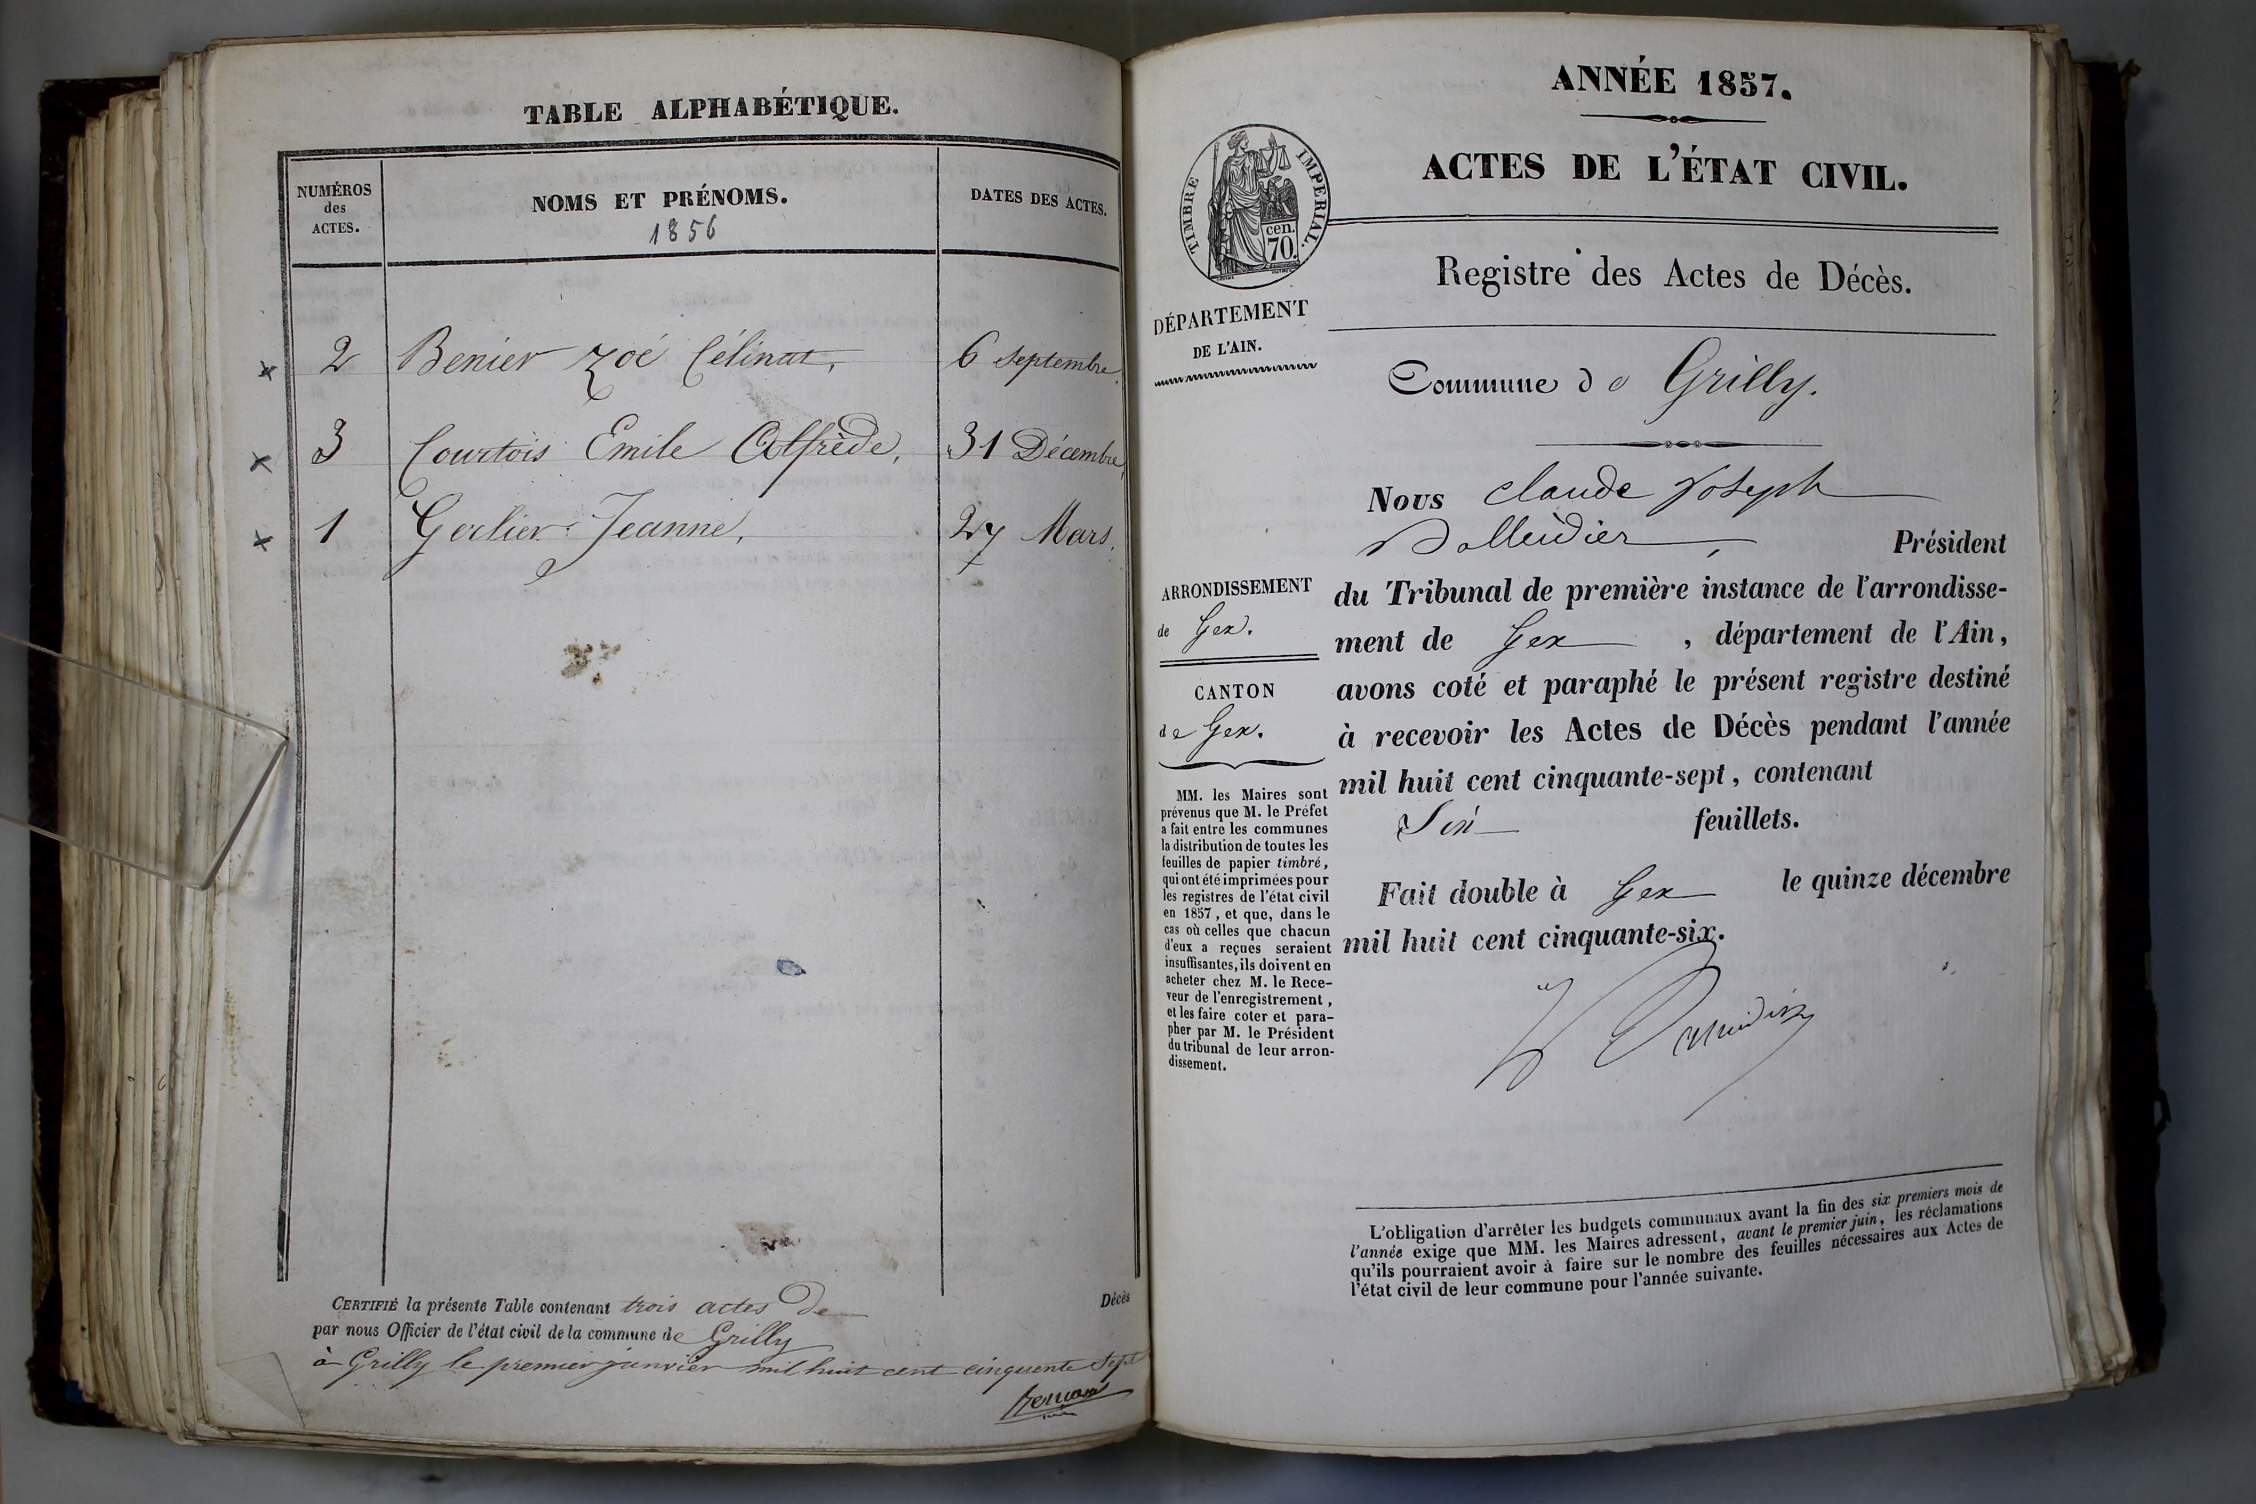 TABLE ALPHABÉTIQUE.
NUMÉROS
des
ACTES.
NOMS ET PRÉNOMS.
1856
DATES DES ACTES.
2 Benier Zoé Célinat, 6 septembre.
3 Courtois Emile Alfrède, 31 Décembre,
1 Gerlier Jeanne, 27 Mars.
CERTIFIÉ la présente Table contenant trois actes de Décès
par nous Officier de l'état civil de la commune de Grilly
à Grilly le premier janvier mil huit cent cinquente sept
ANNÉE 1857.
ACTES DE L'ÉTAT CIVIL.
TIMBRE IMPERIAL.
cen.
70.
Registre des Actes de Décès.
DÉPARTEMENT
DE L'AIN.
Commune de Grilly.
Nous Claude Joseph
Président
du Tribunal de première instance de l'arrondisse-
ment de Gex, département de l'Ain,
avons coté et paraphé le présent registre destiné
à recevoir les Actes de Décès pendant l'année
mil huit cent cinquante-sept, contenant
Six feuillets.
Fait double à Gex le quinze décembre
mil huit cent cinquante-six.
ARRONDISSEMENT
de Gex.
CANTON
de Gex.
MM. les Maires sont
prévenus que M. le Préfet
a fait entre les communes
la distribution de toutes les
feuilles de papier timbré,
qui ont été imprimées pour
les registres de l'état civil
en 1857, et que, dans le
cas où celles que chacun
d'eux a reçues seraient
insuffisantes, ils doivent en
acheter chez M. le Rece-
veur de l'enregistrement,
et les faire coter et para-
pher par M. le Président
du tribunal de leur arron-
dissement.
L'obligation d'arrêter les budgets communaux avant la fin des six premiers mois de
l'année exige que MM. les Maires adressent, avant le premier juin, les réclamations
qu'ils pourraient avoir à faire sur le nombre des feuilles nécessaires aux Actes de
l'état civil de leur commune pour l'année suivante.